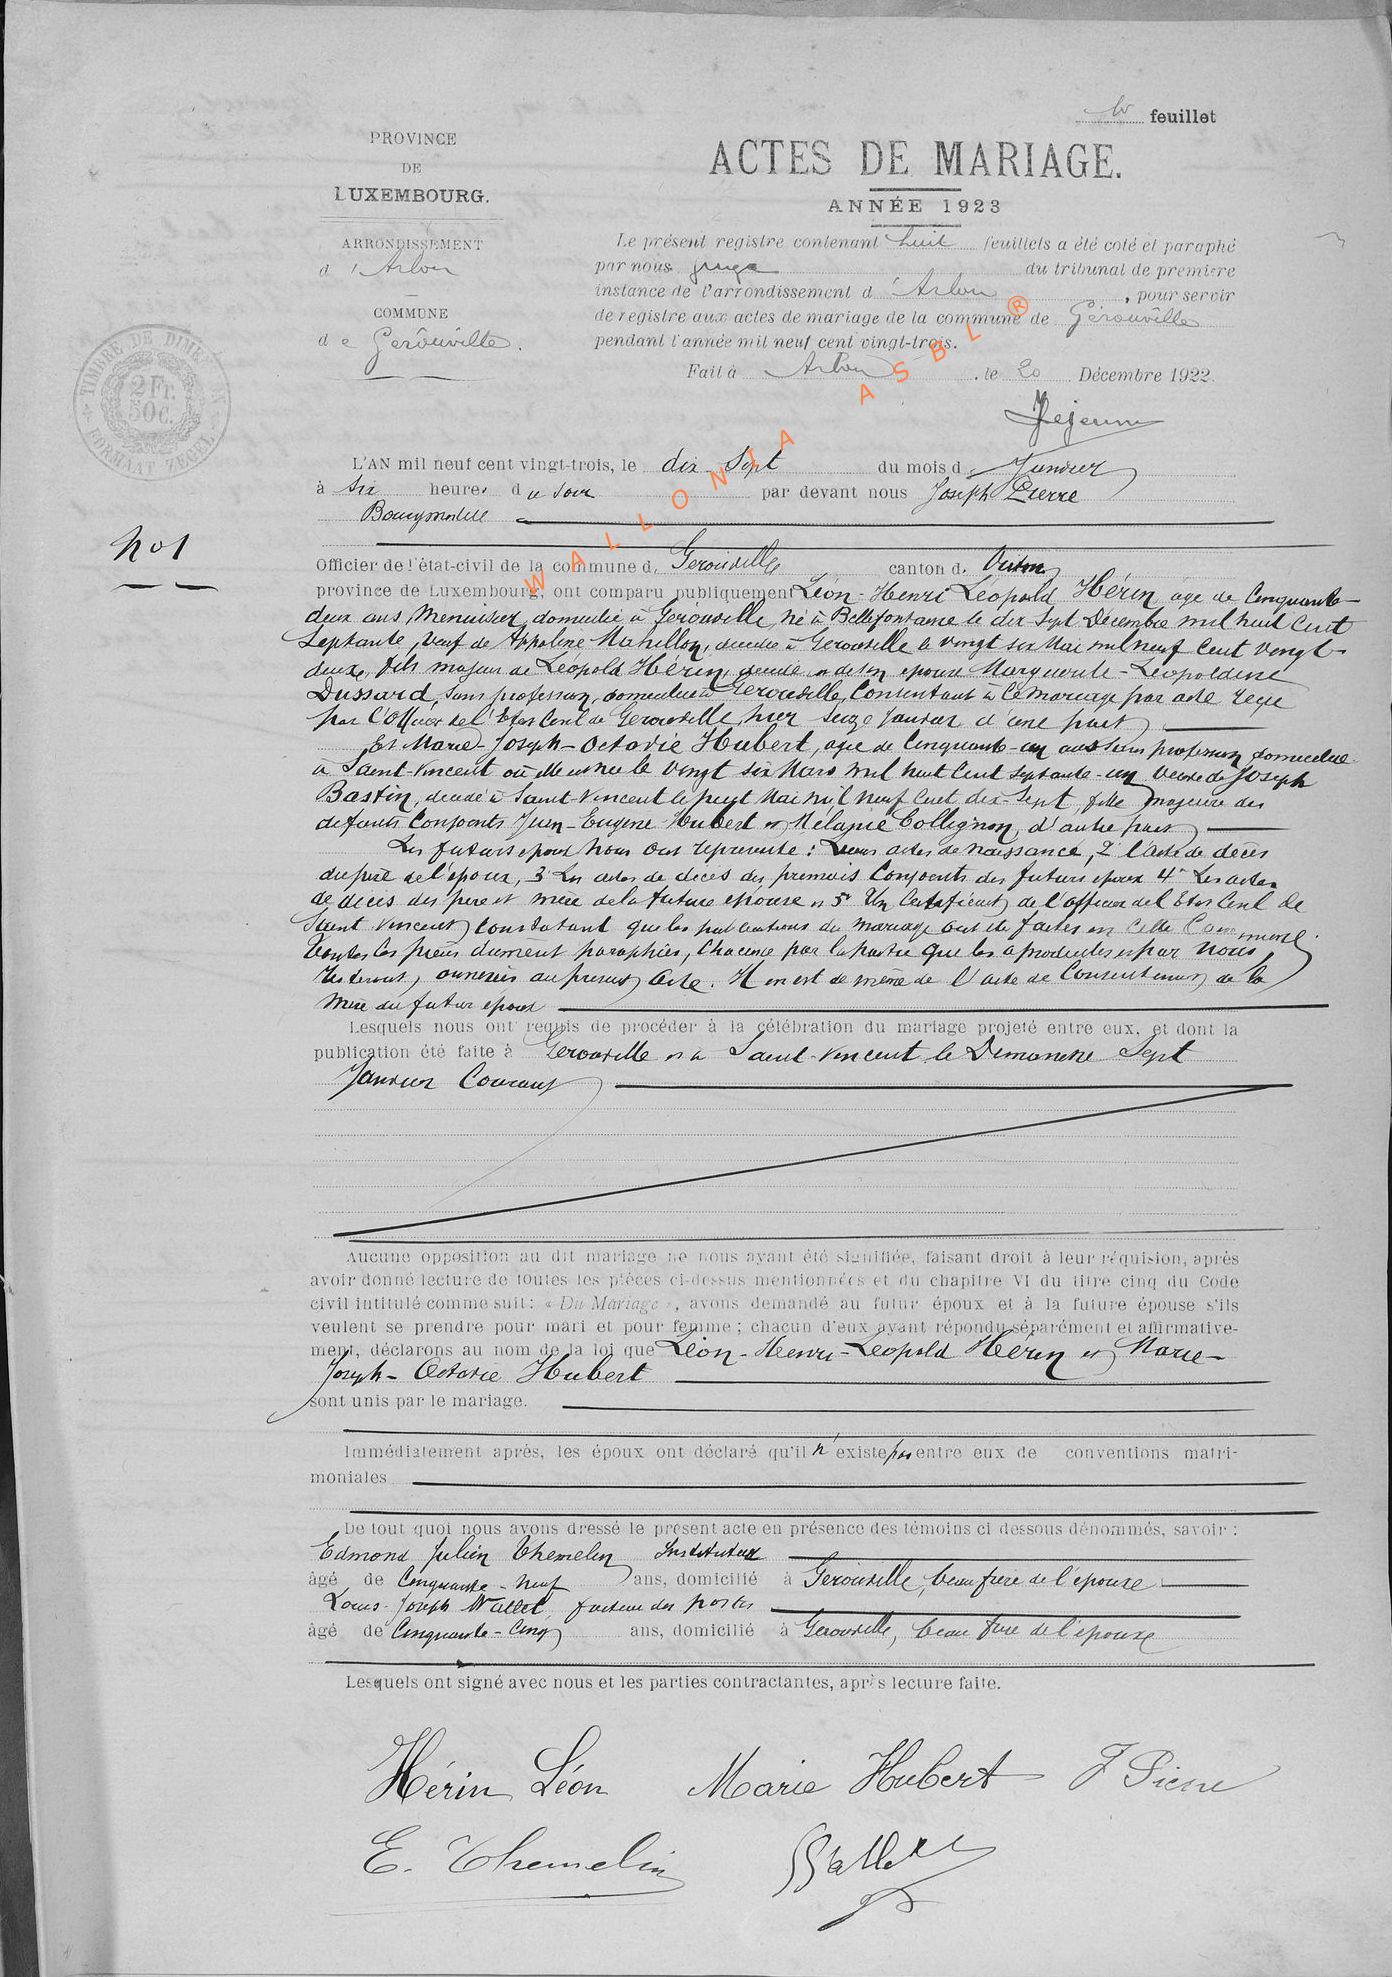 1er feuillet
PROVINCE
DE
LUXEMBOURG.
ARRONDISSEMENT
d'Arlon
COMMUNE
de Gérouville.
TIMBRE DE DIMENSION
2 Fr.
50c.
FORMAAT ZEGEL
ACTES DE MARIAGE.
ANNÉE 1923
Le présent registre contenant huit feuillets a été coté et paraphé
par nous juge du tribunal de première
instance de l'arrondissement d'Arlon, pour servir
de registre aux actes de mariage de la commune de Gérouville
pendant l'année mil neuf cent vingt-trois.
Fait à Arlon, le 20 Décembre 1922.
Lejeune
WALLONIA ASBL ®
No 1
L'AN mil neuf cent vingt-trois, le dix-Sept du mois de Janvier
à six heures du soir par devant nous Joseph Pierre
Bourgmestre
Officier de l'état-civil de la commune d. Gérouville canton d. Virton
province de Luxembourg, ont comparu publiquement Léon-Henri Léopold Hérin, âgé de Cinquante-
deux ans Menuisier, domicilié à Gérouville, né à Bellefontaine le dix Sept Décembre mil huit Cent
Septante, veuf de Appoline Mahillon, décédée à Gérouville le vingt six Mai mil neuf Cent vingt-
deux, fils majeur de Léopold Hérin, décédé et de son épouse Marguerite-Léopoldine
Dussard, sans profession, domiciliée à Gérouville, Consentant à ce mariage par acte reçu
par l'Officier de l'Etat Civil de Gérouville, hier seize Janvier d'une part
Et Marie-Joseph-Octavie Hubert, âgée de Cinquante-un ans sans profession domiciliée
à Saint-Vincent où elle est née le vingt six Mars mil huit Cent septante-un veuve de Joseph
Bastin, décédé à Saint-Vincent le Mai mil neuf Cent dix-Sept, fille majeure des
défunts Conjoints Jean-Eugène Hubert et Mélanie Collignon, d'autre part
Les futurs époux nous ont représenté : Leurs actes de naissance, 2° l'acte de décès
du père de l'époux, 3° Les actes de décès des premiers Conjoints des futurs époux 4° Les actes
de décès des père et mère de la future épouse et 5° Un Certificat de l'officier de l'Etat Civil de
Saint Vincent constatant que les publications du mariage ont été faites en cette Commune.
Toutes les pièces dûment paraphées, Chacune par la partie que les a produites et par nous
resteront annexées au présent Acte. Il en est de même de l'acte de Consentement de la
mère du futur époux
Lesquels nous ont requis de procéder à la célébration du mariage projeté entre eux, et dont la
publication été faite à Gérouville et à Saint-Vincent le Dimanche Sept
Janvier Courant
Aucune opposition au dit mariage ne nous ayant été signifiée, faisant droit à leur réquision, après
avoir donné lecture de toutes les pièces ci-dessus mentionnées et du chapitre VI du titre cinq du Code
civil intitulé comme suit : « Du Mariage », avons demandé au futur époux et à la future épouse s'ils
veulent se prendre pour mari et pour femme ; chacun d'eux ayant répondu séparément et affirmative-
ment, déclarons au nom de la loi que Léon-Henri-Léopold Hérin et Marie-
Joseph-Octavie Hubert
sont unis par le mariage.
Immédiatement après, les époux ont déclaré qu'il n'existe pas entre eux de conventions matri-
moniales
De tout quoi nous avons dressé le présent acte en présence des témoins ci dessous dénommés, savoir :
Edmond Julien Themelin Instituteur
âgé de Cinquante-neuf ans, domicilié à Gérouville, beau frère de l'épouse
Louis-Joseph Wallet, facteur des postes
âgé de Cinquante-Cinq ans, domicilié à Gérouville, beau frère de l'épouse
Lesquels ont signé avec nous et les parties contractantes, après lecture faite.
Hérin Léon Marie Hubert J Pierre
E. Themelin Wallet